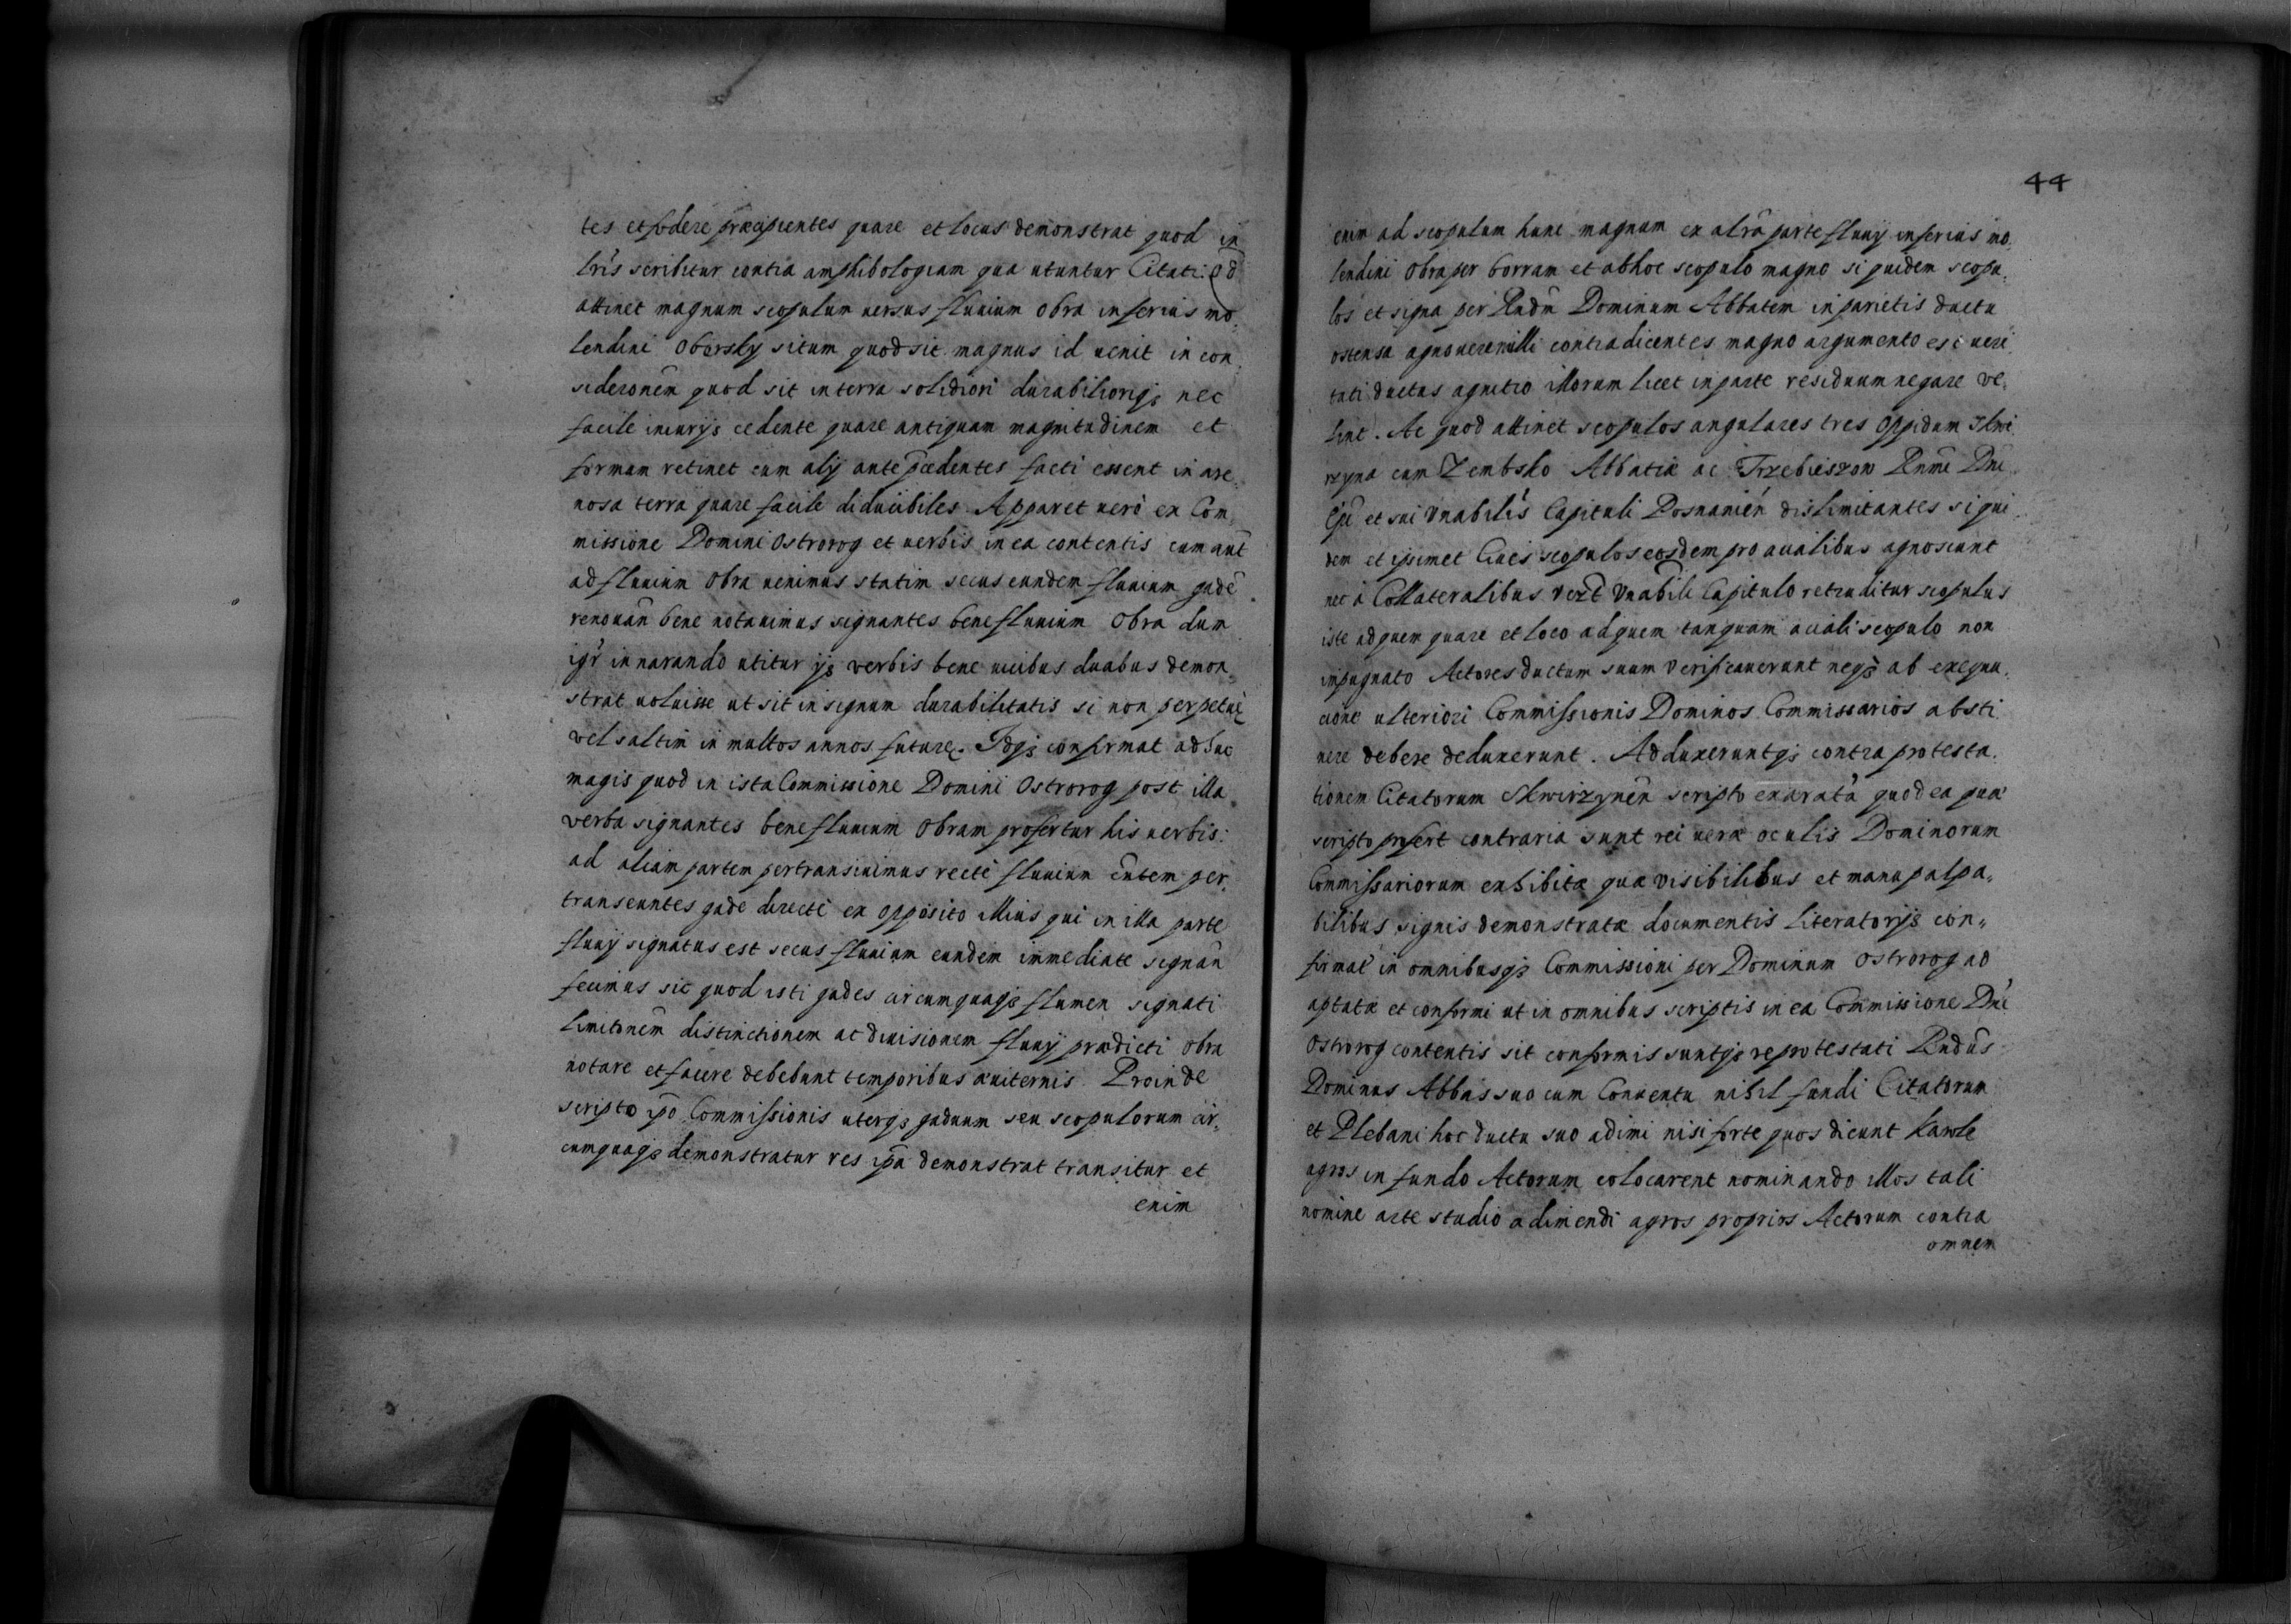 tes et fodere præcipientes quare et locus demonstrat quod in
lrīs scribitur contra amphibologiam qua utuntur Citati. Qd
attinet magnum scopulum versus fluuium Obra inferius mo„
lendini Obersky situm quod sit magnus id uenit in con„
sideronem quod sit in terra solidiori durabiliorique nec
facile iniurijs cedente quare antiquam magnitudinem et
formam retinet cum alij antecedentes facti essent in are„
nosa terra quare facile diducibiles. Apparet uerò ex Com„
missione Domini Ostrorog et uerbis in ea contentis cum aut
ad fluuium Obra uenimus statim secus eundem fluuium gade
renouan bene notauimus signantes bene fluuium Obra dum
igr in narando utitur ijs verbis bene uicibus duabus demon„
strat uoluisse ut sit in signum durabilitatis si non perpetuę
vel saltim in multos annos futurę. Idqz confirmat adhuc
magis quod in ista Commissione Domini Ostrorog post illa
verba signantes bene fluuium Obram profertur his uerbis:
ad aliam partem pertransiuimus recte fluuium eutem per„
transeuntes gade directe ex opposito illius qui in illa parte
fluuij signatus est secus fluuium eundem immediate signan
fecimus sic quod isti gades circumquaqz flumen signati
limitonem distinctionem ac diuisionem fluuij prædicti Obra
notare et facere debebunt temporibus æuiternis. Proinde
scripto ipo Commissionis uterqz gaduum seu scopulorum cir„
cumquaqz demonstratur res ipa demonstrat transitur et
enim
44
enim ad scopulum hunc magnum ex altra parte fluuij inferius mo„
lendini Obra per borram et ab hoc scopulo magno siquidem scopu„
los et signa per Rndm Dominum Abbatem in parietis ductu
ostensa agnouere nulli contradicentes magno argumento est ueri„
tati ductus agnitio illorum licet in parte residuum negare ve„
lint. Ac quod attinet scopulos angulares tres Oppidum Skwi„
rzyna cum Zembsko Abbatiæ ac Trzebieszow Rnme Dni
Epi et sui Vnabilis Capituli Posnanien dislimitantes siqui„
dem et ipsimet Ciues scopulos eosdem pro acialibus agnoscunt
nec à Collateralibus Vnabili Capitulo retruditur scopulus
iste ad quem quare et loco ad quem tanquam aciali scopulo non
impugnato Actores ductum suum verificauerunt neqz ab exequu„
cione ulteriori Commissionis Dominos Commissarios absti„
nere debere deduxerunt. Adduxeruntqz contra protesta„
tionem Citatorum Skwirzynen scripto exarata quod ea quæ
scripto profert contraria sunt rei ueræ oculis Dominorum
Commissariorum exhibitæ quæ visibilibus et manu palpa„
bilibus signis demonstratæ documentis literatorijs con„
firmatę in omnibusqz Commissioni per Dominum Ostrorog ad
aptatæ et conformi ut in omnibus scriptis in ea Commissione Dni
Ostrorog contentis sit conformis suntqz reprotestati Rndus
Dominus Abbas suo cum Conuentu nihil fundi Citatorum
et Plebani hoc ductu suo adimi nisi forte quos dicunt Kawle
agros in fundo Actorum colocarent nominando illos tali
nomine arte studio adimendi agros proprios Actorum contra
omnem